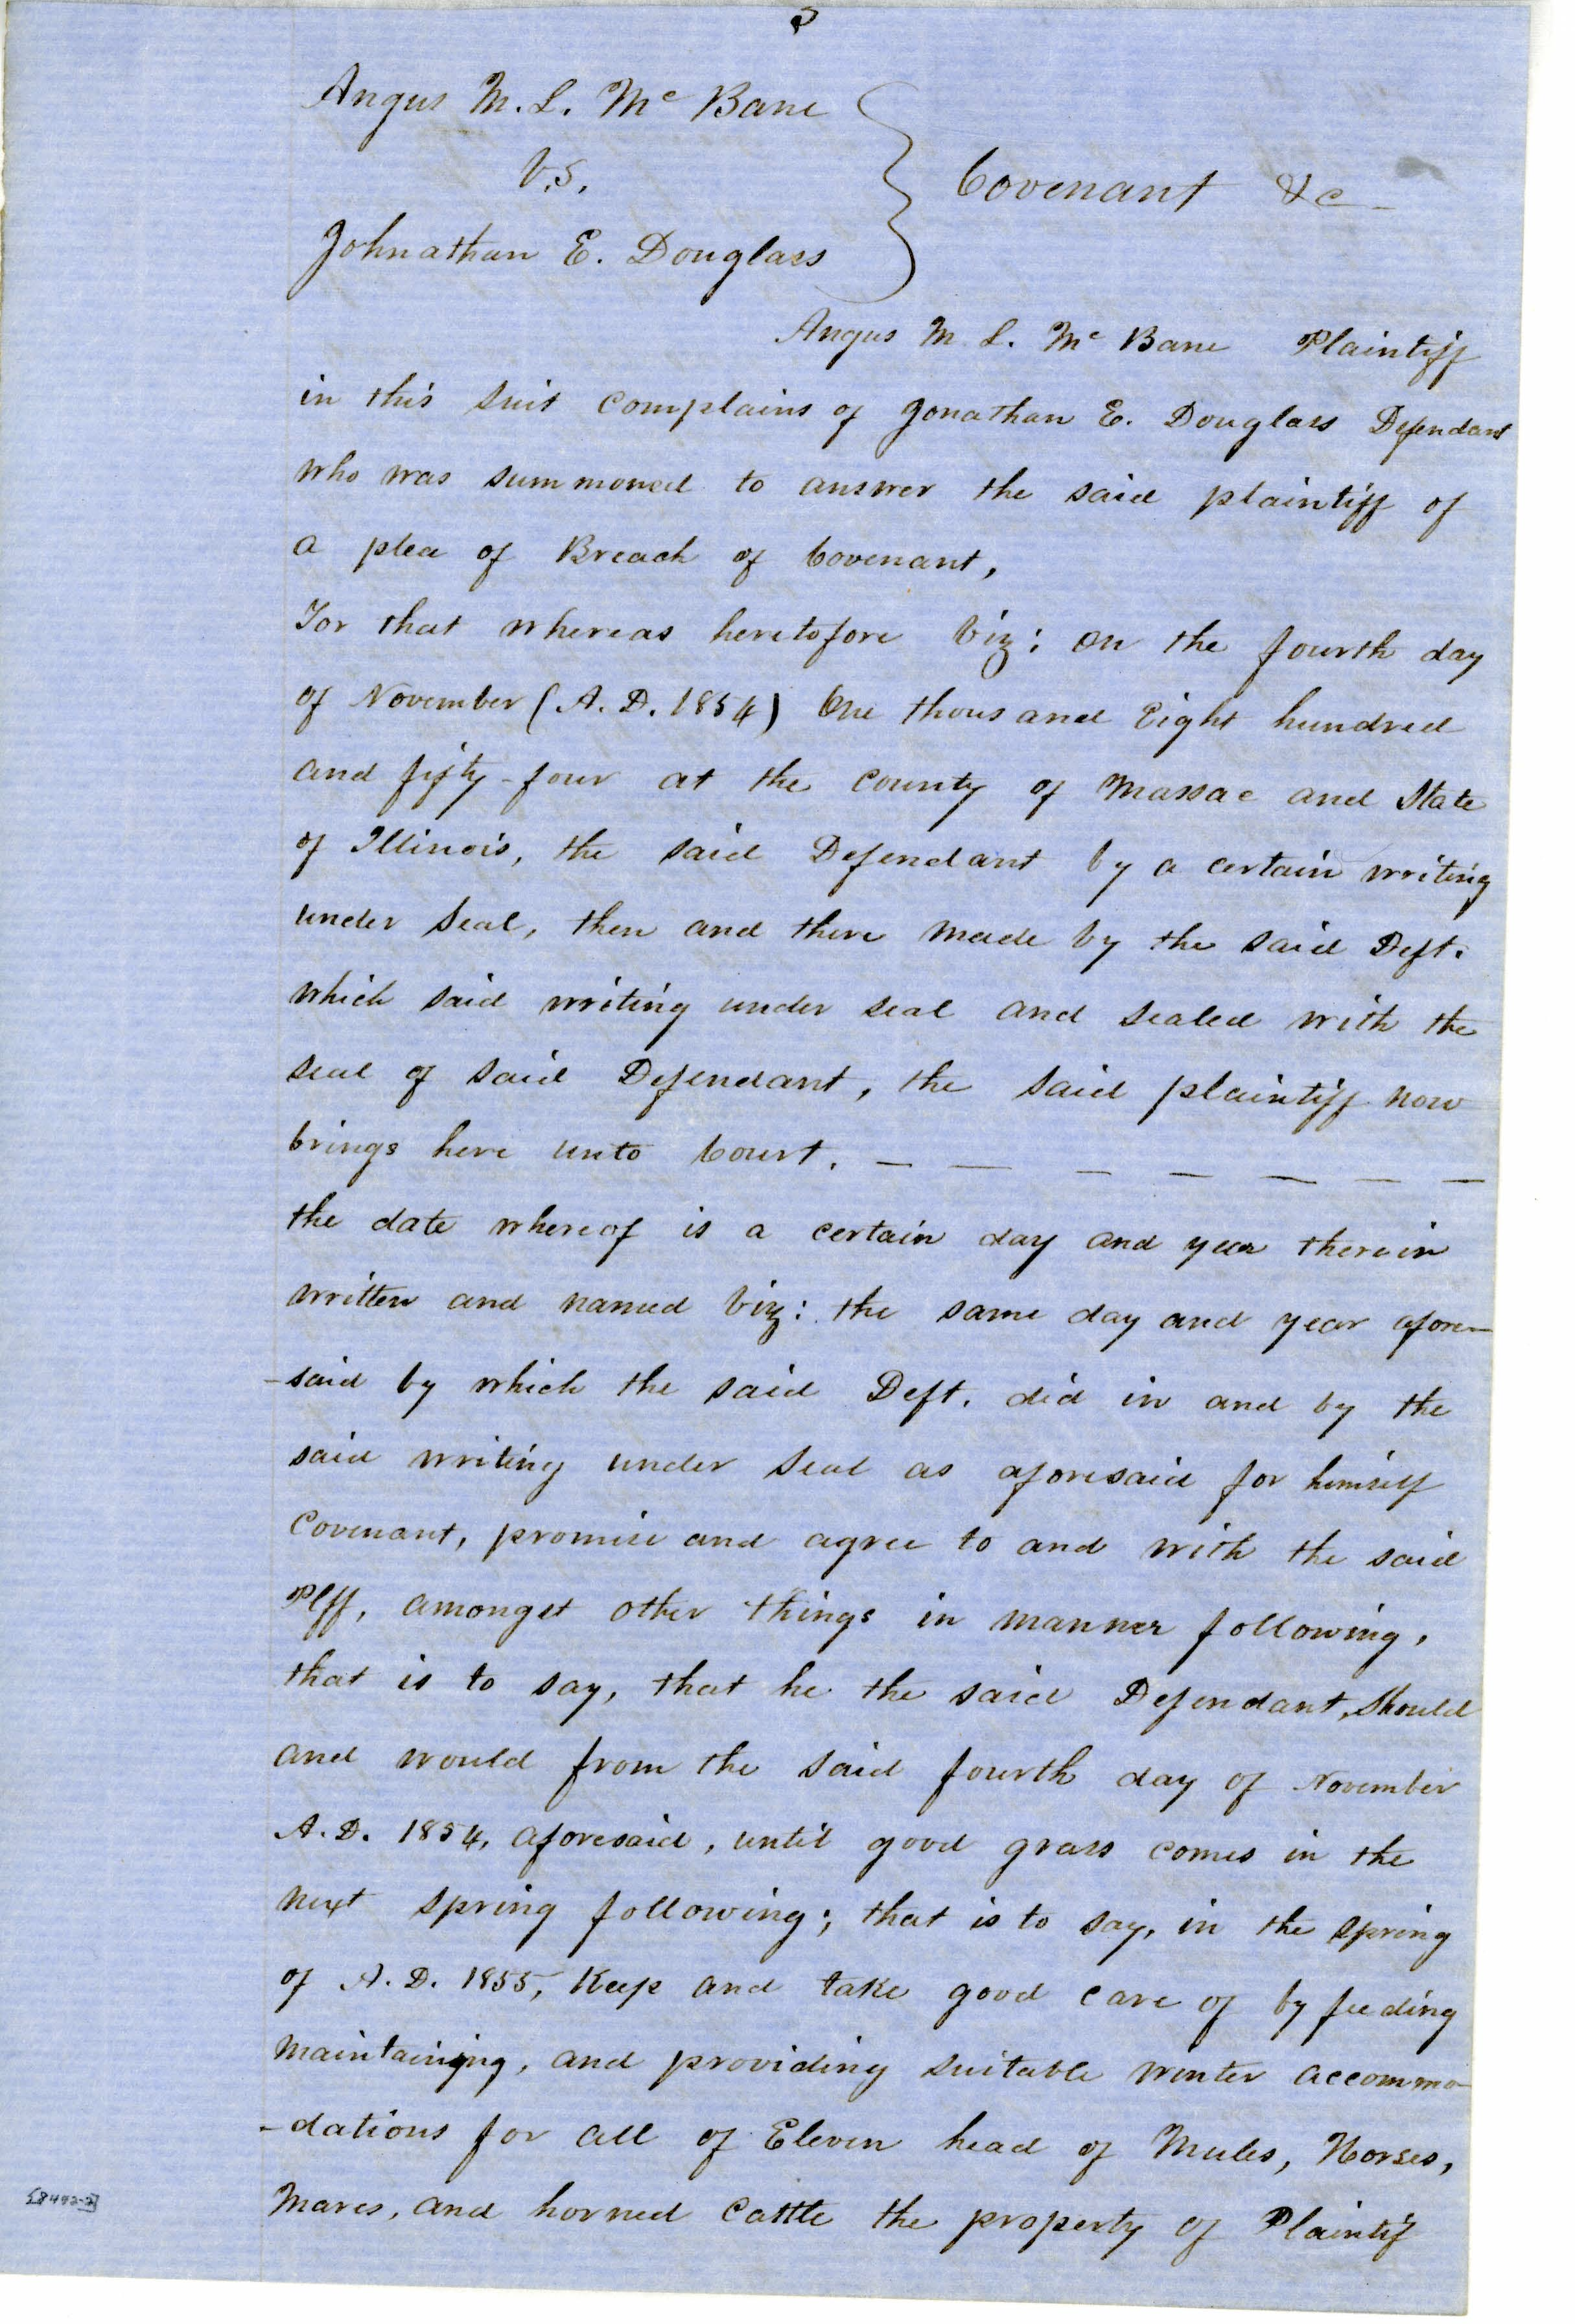 5
Angus M. L. Mc Bane
V.S.
Johnathan E. Douglass
Covenant &c
Angus M L. Mc Bane Plaintiff
in this suit complains of Jonathan E. Douglass Defendant
who was summoned to answer the said plaintiff of
a plea of Breach of Covenant,
For that whereas heretofore viz: on the fourth day
of November (A. D. 1854) One thousand Eight hundred
and fifty-four at the County of Massac and State
of Illinois, the said Defendant by a certain writing
under Seal, then and there made by the said Deft.
which said writing under seal and sealed with the
seal of said Defendant, the said plaintiff now
brings here unto Court. — — — — — — —
the date whereof is a certain day and year therein
written and named viz: the same day and year afore-
-said by which the said Deft. did in and by the
said writing under Seal as aforesaid for himself
Covenant, promise and agree to and with the said
Plff, amongst other things in manner following,
that is to say, that he the said Defendant, should
and would from the said fourth day of November
A. D. 1854, aforesaid, until good grass comes in the
next spring following; that is to say, in the spring
of A. D. 1855, Keep and take good care of by feeding
maintaining, and providing suitable winter accommo-
-dations for all of Eleven head of Mules, Horses,
Mares, and horned Cattle the property of Plaintif